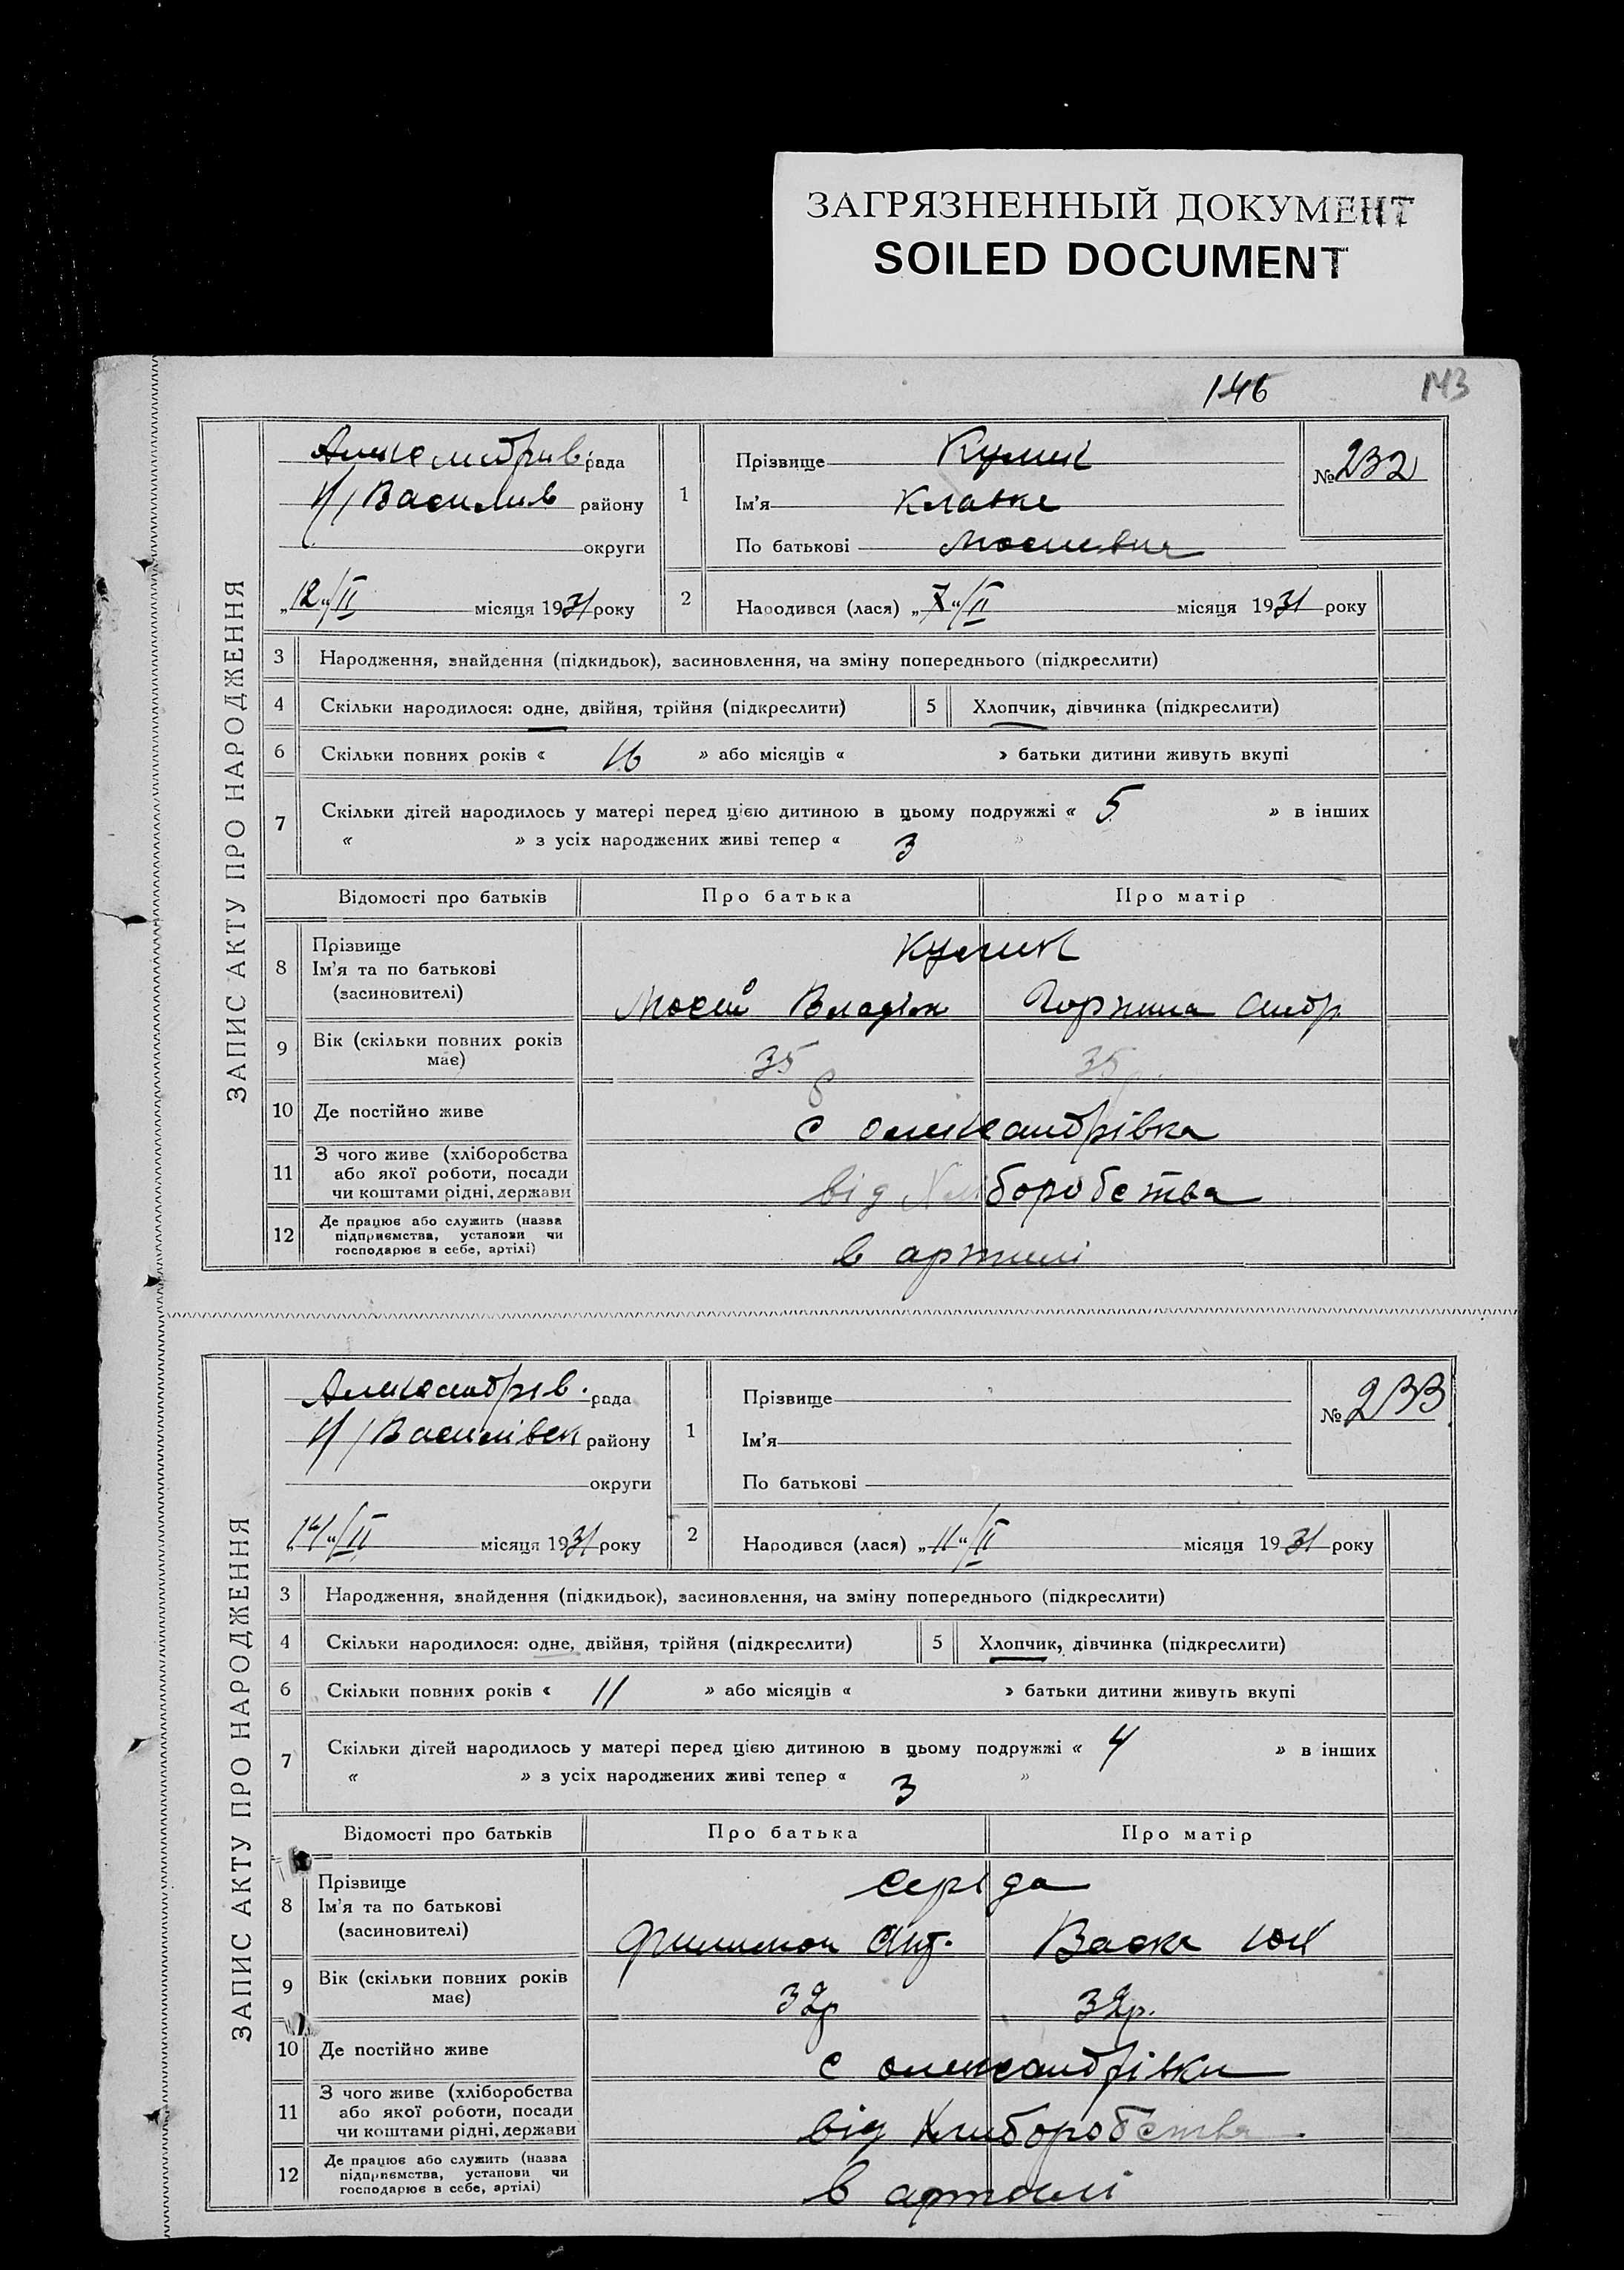 ЗАГРЯЗНЕННЫЙ ДОКУМЕНТ
SOILED DOCUMENT
146 143
ЗАПИС АКТУ ПРО НАРОДЖЕННЯ
рада
Н/Василив району
округи
„12“/II місяця 1931 року
1
Прізвище Кулик
Ім'я
По батькові
№ 232
2 Народився (лася) „7“/II місяця 1931 року
3 Народження, знайдення (підкидьок), засиновлення, на зміну попереднього (підкреслити)
4 Скільки народилося: одне, двійня, трійня (підкреслити) 5 Хлопчик, дівчинка (підкреслити)
6 Скільки повних років « 16 » або місяців « » батьки дитини живуть вкупі
7 Скільки дітей народилось у матері перед цією дитиною в цьому подружжі « 5 » в інших
« » з усіх народжених живі тепер « 3 »
Відомості про батьків Про батька Про матір
8 Прізвище
Ім'я та по батькові
(засновителі)
Кулик
Мосий Горпина
9 Вік (скільки повних років
має)
35 35
10 Де постійно живе с Олександрівка
11 З чого живе (хліборобства
або якої роботи, посади
чи коштами рідні, держави
від Хлиборобства
12 Де працює або служить (назва
підприємства, установи чи
господарює в себе, артілі)
в артилі
ЗАПИС АКТУ ПРО НАРОДЖЕННЯ
Александрів. рада
Н/Василівск району
округи
14“/II місяця 1931 року
1
Прізвище
Ім'я
По батькові
№ 233
2 Народився (лася) „11“/II місяця 1931 року
3 Народження, знайдення (підкидьок), засиновлення, на зміну попереднього (підкреслити)
4 Скільки народилося: одне, двійня, трійня (підкреслити) 5 Хлопчик, дівчинка (підкреслити)
6 Скільки повних років « 11 » або місяців « » батьки дитини живуть вкупі
7 Скільки дітей народилось у матері перед цією дитиною в цьому подружжі « 4 » в інших
« » з усіх народжених живі тепер « 3 »
Відомості про батьків Про батька Про матір
8 Прізвище
Ім'я та по батькові
(засиновителі)
Серіда
Филимон Ант.
9 Вік (скільки повних років
має)
32р 32р.
10 Де постійно живе с Олександрівки
11 З чого живе (хліборобства
або якої роботи, посади
чи коштами рідні, держави
від Хлиборобства
12 Де працює або служить (назва
підприємства, установи чи
господарює в себе, артілі)
в артілі